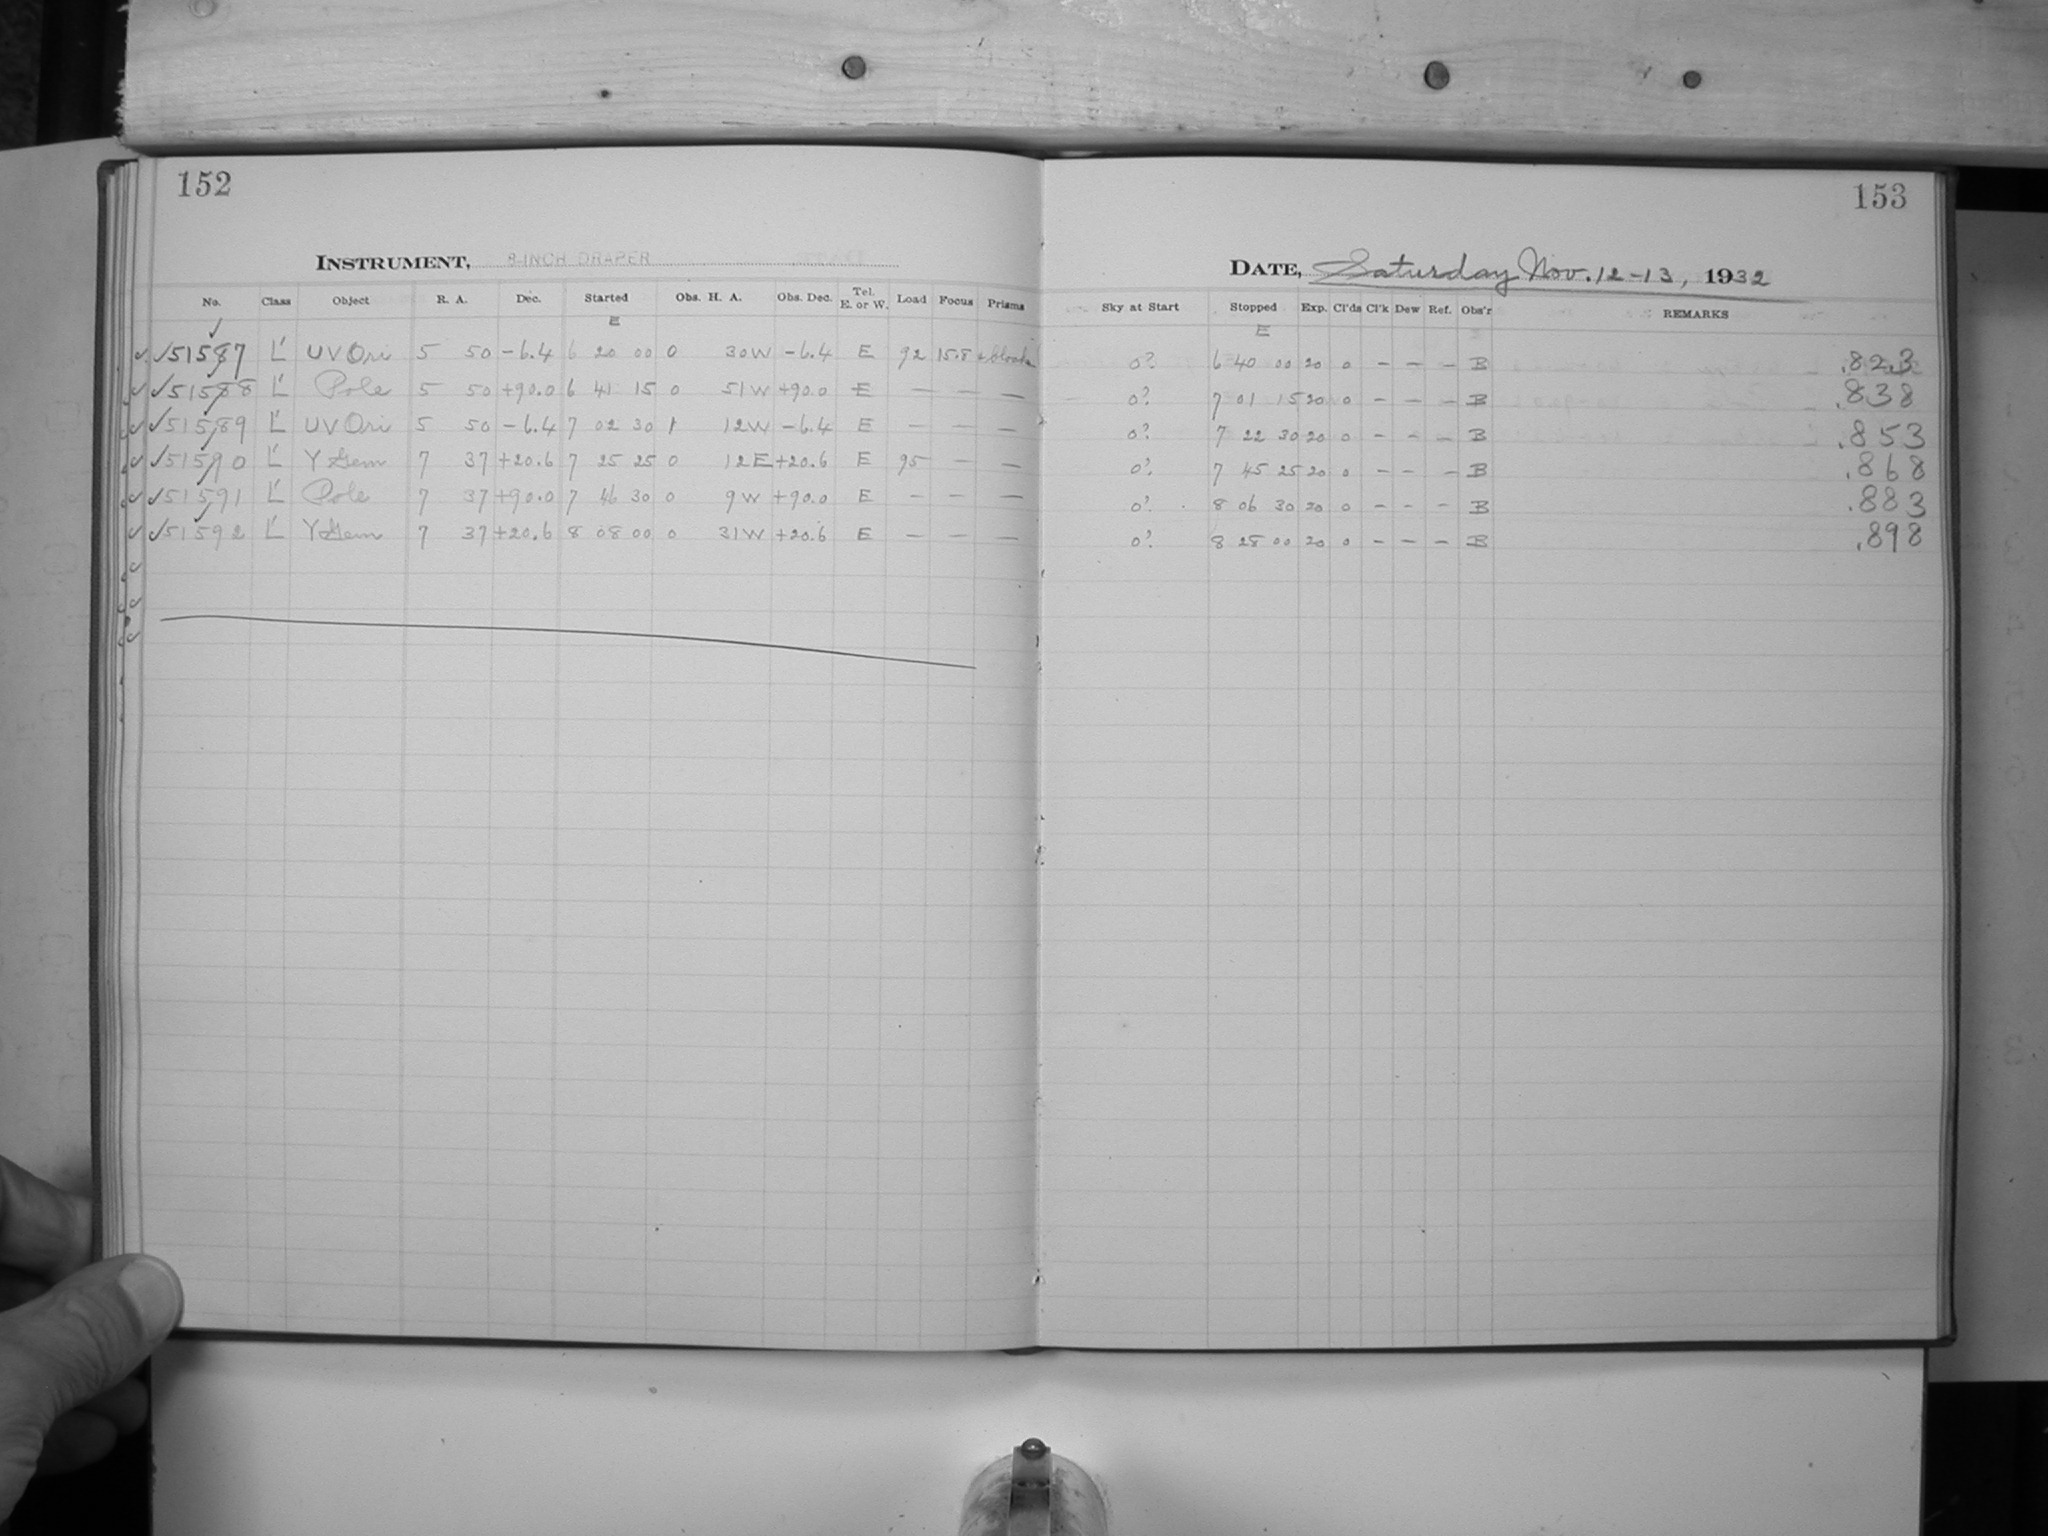 152
INSTRUMENT, 8-INCH DRAPER
No. Class Object R. A. Dec. Started Obs. H. A. Obs. Dec. Tel. E. or W. Load Focus Prisms
E
51587 L' UV Ori 5 50 -6.4 6 20 00 0 30W -6.4 E 92 15.8
51588 L' Pole 5 50 +90.0 6 41 15 0 51W +90.0 E — — —
51589 L' UV Ori 5 50 -6.4 7 02 30 1 12W -6.4 E — — —
51590 L' Y Gem 7 37 +20.6 7 25 25 0 12E +20.6 E 95 — —
51591 L' Pole 7 37 +90.0 7 46 30 0 9W +90.0 E — — —
51592 L' Y Gem 7 37 +20.6 8 08 00 0 31W +20.6 E — — —
153
DATE, Saturday Nov. 12-13, 1932
Sky at Start Stopped Exp. Cl'ds Cl'k Dew Ref. Obs'r REMARKS
E
0? 6 40 00 20 0 — — — B .823
0? 7 01 15 20 0 — — — B .838
0? 7 22 30 20 0 — — — B .853
0? 7 45 25 20 0 — — — B .868
0? 8 06 30 20 0 — — — B .883
0? 8 28 00 20 0 — — — B .898